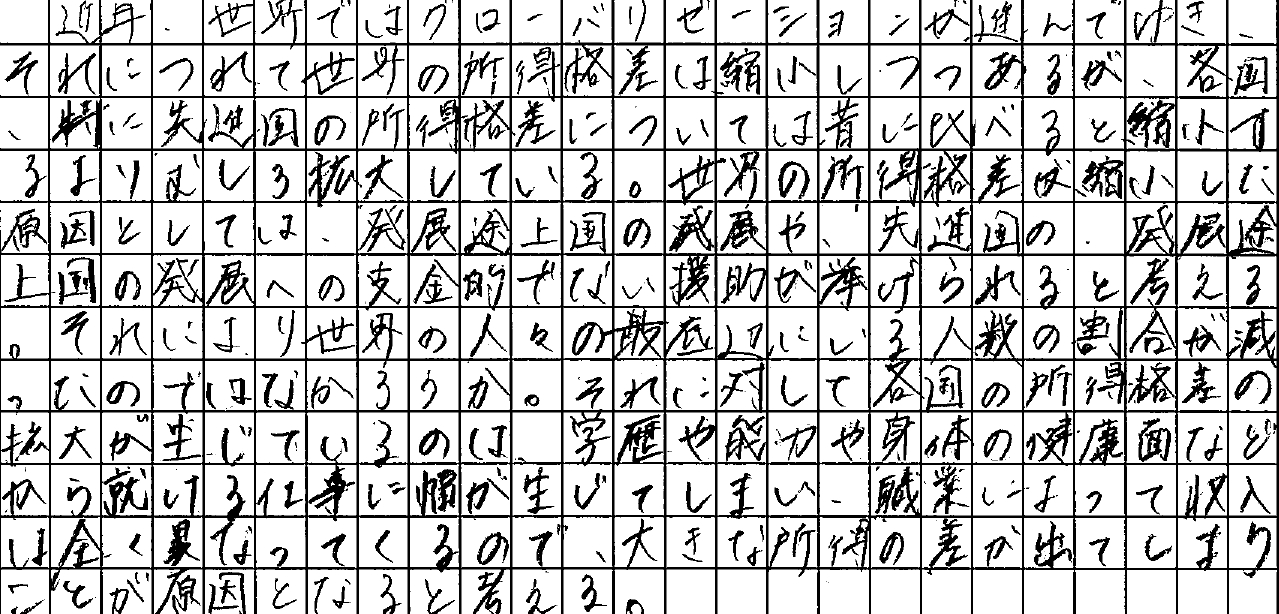 近年、世界ではグローバリゼーションが進んでゆき、
それにつれて世界の所得格差は縮小しつつあるが、各国
、特に先進国の所得格差については昔に比べると縮小す
るよりむしろ拡大している。世界の所得格差が縮小した
原因としては、発展途上国の発展や、先進国の、発展途
上国の発展への支金的でない援助が挙げられると考える
。それにより世界の人々の最底辺にいる人数の割合が減
ったのではなかろうか。それに対して各国の所得格差の
拡大が生じているのは、学歴や能力や身体の健康面など
から就ける仕事に幅が生じてしまい、職業によって収入
は全く異なってくるので、大きな所得の差が出てしまう
ことが原因となると考える。